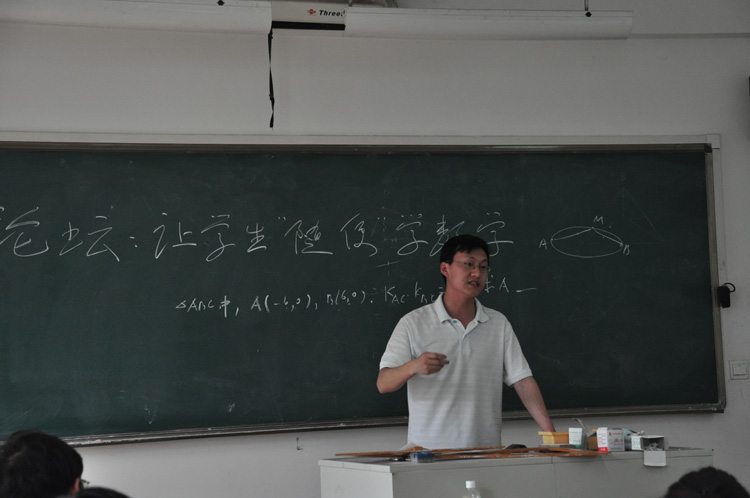 Three
论坛:让学生"随便"学数学
△ABC中, A(-6,0), B(6,0), K_AC·K_BC
A M B